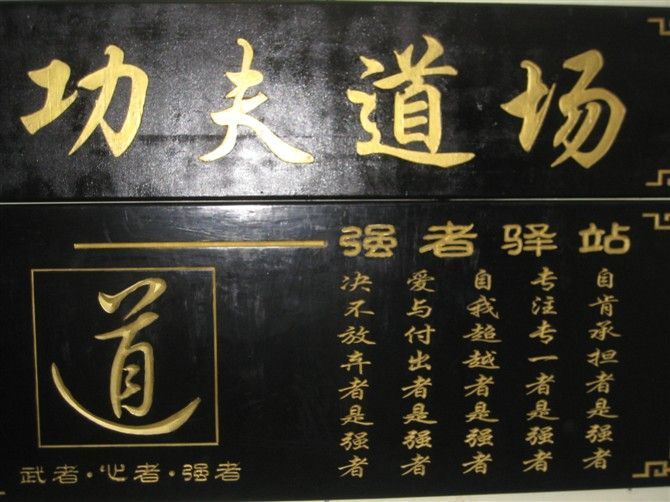 功夫道场
强者驿站
自肯承担者是强者
专注专一者是强者
自我超越者是强者
爱与付出者是强者
决不放弃者是强者
道
武者·心者·强者